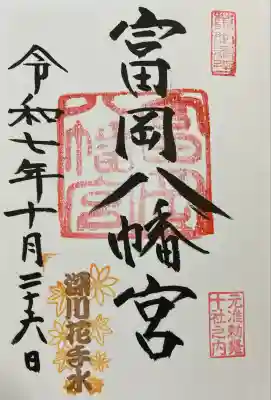 富岡八幡宮
元准勅祭
十社之内
令和七年十月二十六日
深川花手水